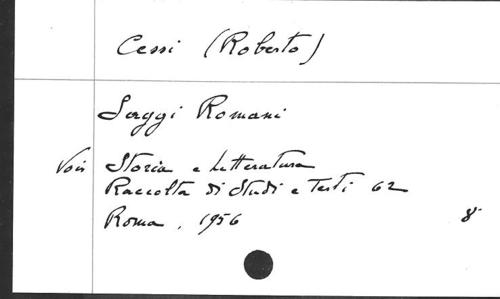 Cessi (Roberto)
Saggi Romani
Voir Storia e Letteratura
Raccolta di Studi e Testi 62
Roma, 1956 8°